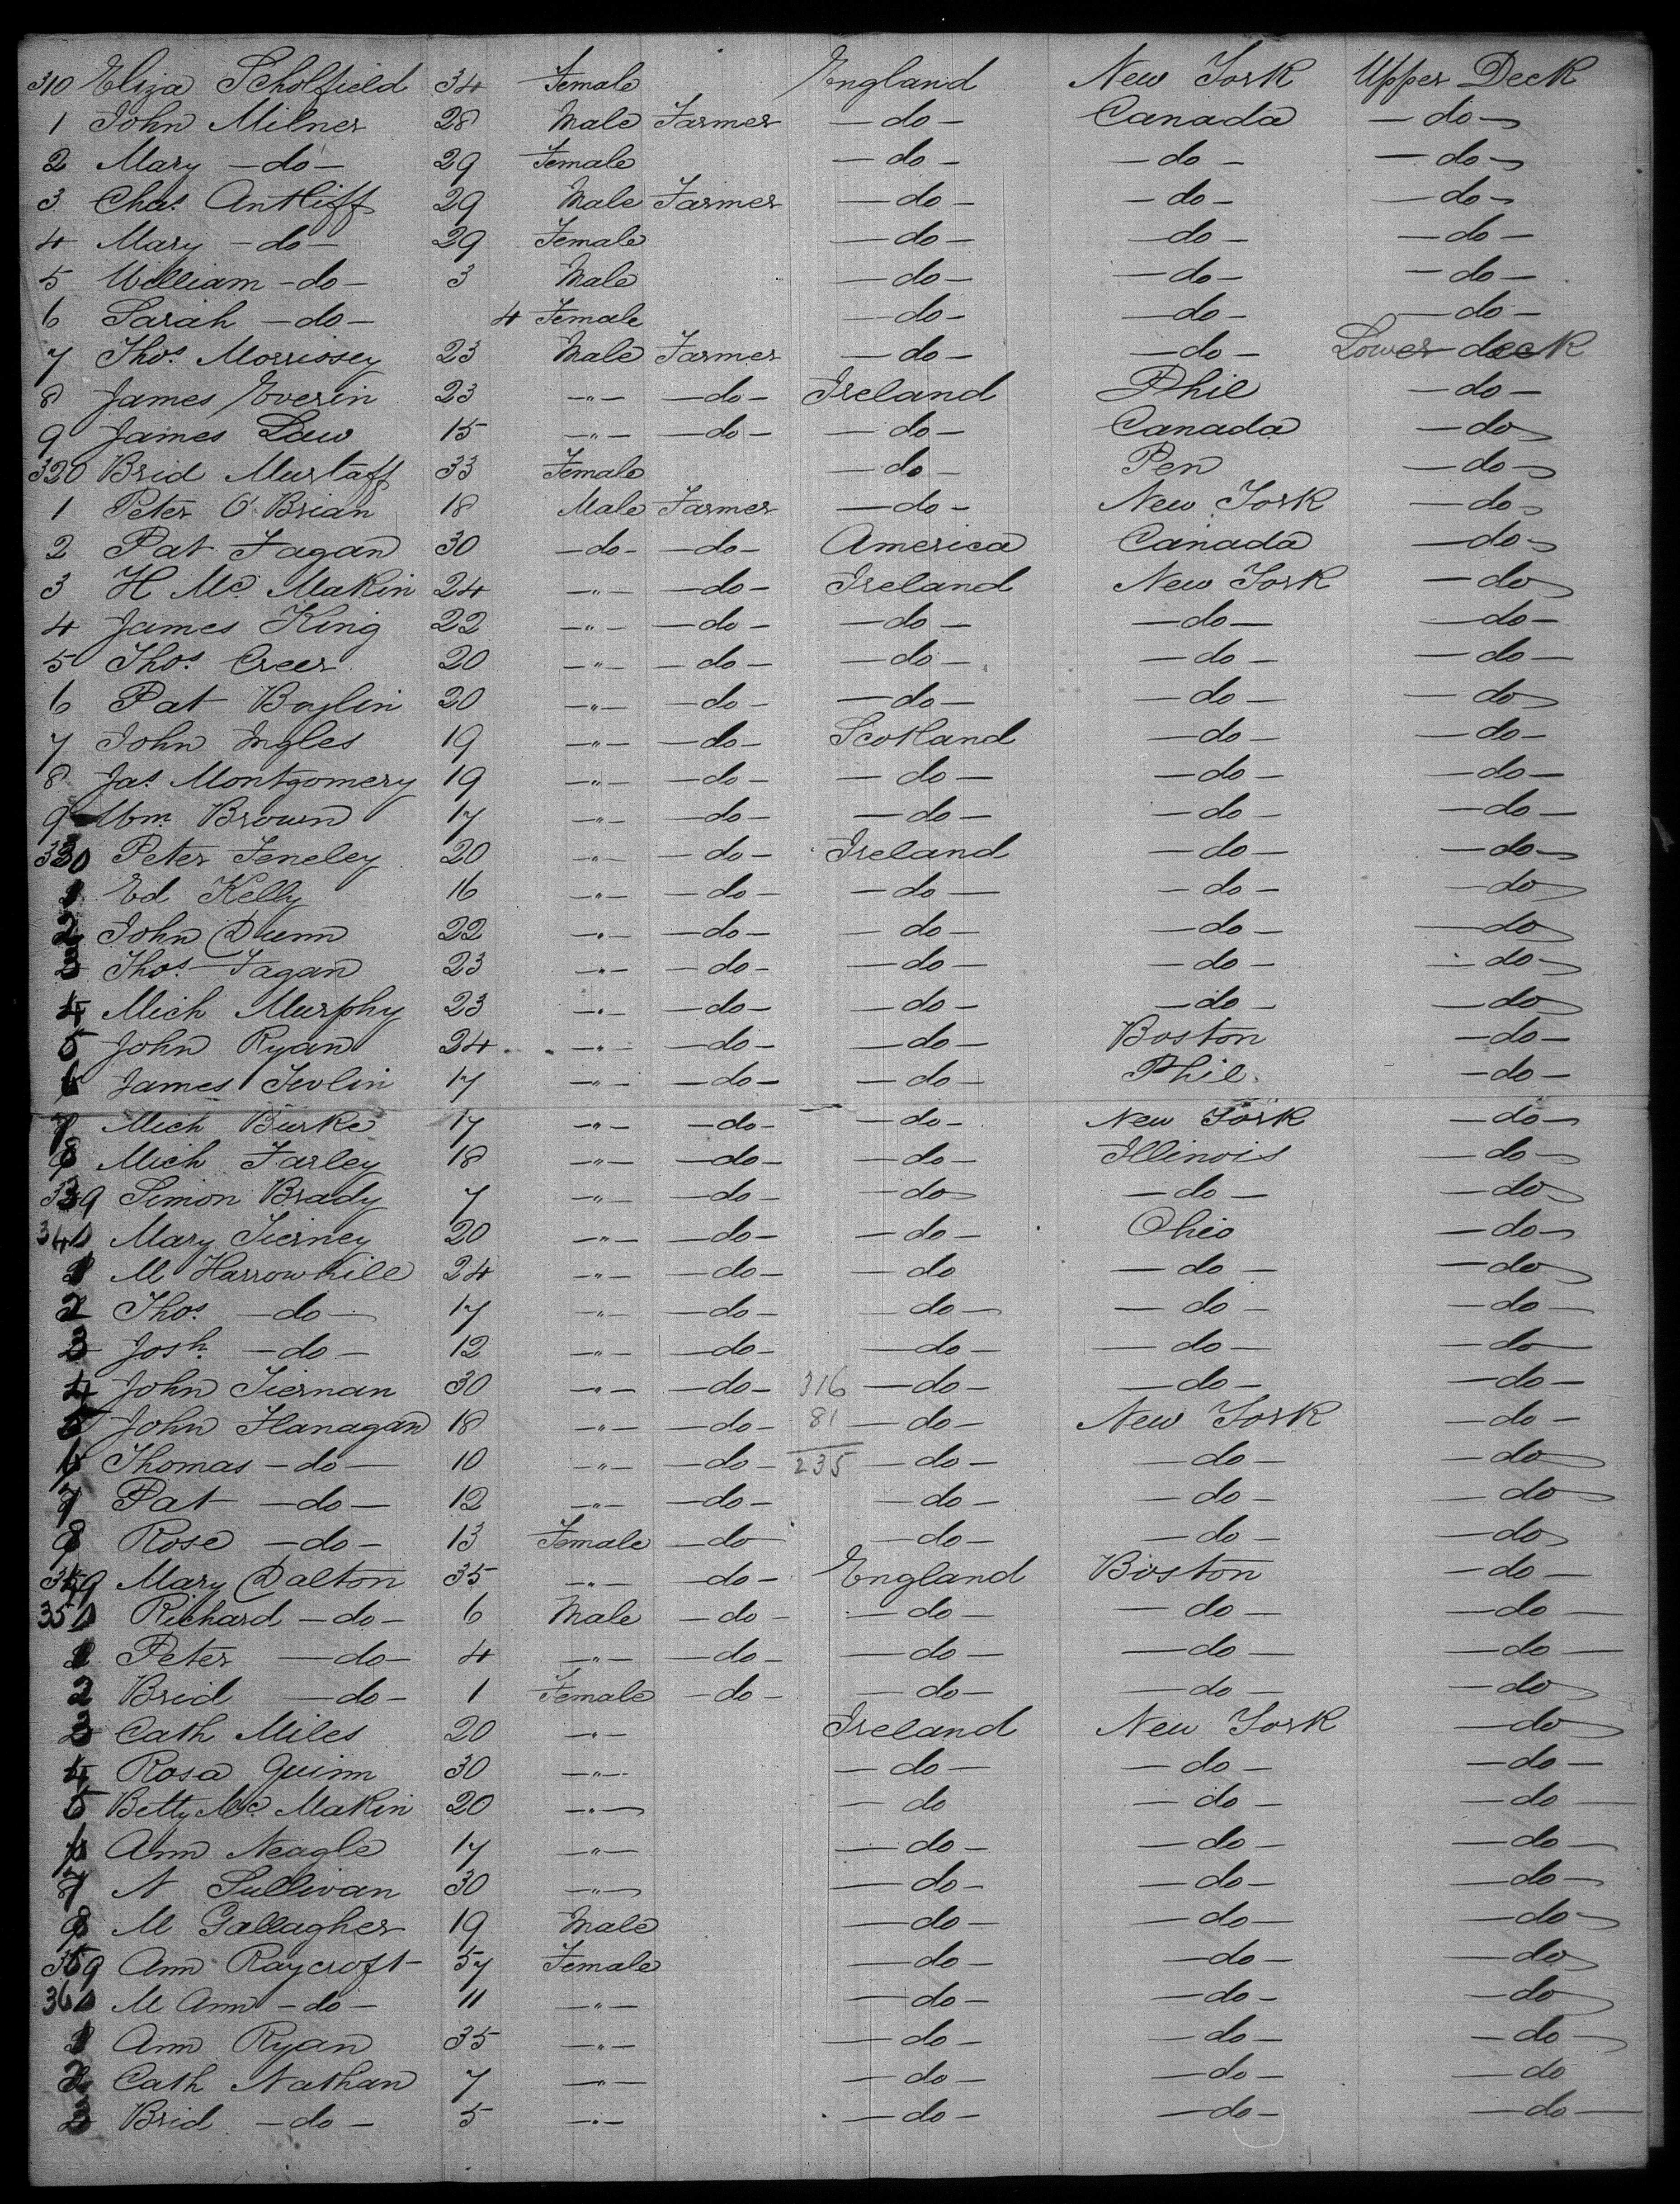 310 Eliza Scholfield 34 Female England New York Upper Deck
1 John Milner 28 Male Farmer — do — Canada — do —
2 Mary — do — 29 Female — do — — do — — do —
3 Chas. Antliff 29 Male Farmer — do — — do — — do —
4 Mary — do — 29 Female — do — — do — — do —
5 William — do — 3 Male — do — — do — — do —
6 Sarah — do — 4 Female — do — — do — — do —
7 Thos. Morrissey 23 Male Farmer — do — — do — Lower deck
8 James Everin 23 — " — — do — Ireland Phil — do —
9 James Law 15 — " — — do — — do — Canada — do —
320 Brid Murtaff 33 Female — do — Pen — do —
1 Peter O'Brian 18 Male Farmer — do — New York — do —
2 Pat Fagan 30 — do — — do — America Canada — do —
3 H Mc. Makin 24 — " — — do — Ireland New York — do —
4 James King 22 — " — — do — — do — — do — — do —
5 Thos. Creer 20 — " — — do — — do — — do — — do —
6 Pat Boylin 20 — " — — do — — do — — do — — do —
7 John Ingles 19 — " — — do — Scotland — do — — do —
8 Jas. Montgomery 19 — " — — do — — do — — do — — do —
9 Wm. Brown 17 — " — — do — — do — — do — — do —
330 Peter Feneley 20 — " — — do — Ireland — do — — do —
1 Ed Kelly 16 — " — — do — — do — — do — — do —
2 John Dunn 22 — " — — do — — do — — do — — do —
3 Thos. Fagan 23 — " — — do — — do — — do — — do —
4 Mich Murphy 23 — " — — do — — do — — do — — do —
5 John Ryan 24 — " — — do — — do — Boston — do —
6 James 17 — " — — do — — do — Phil. — do —
7 Mich Burke 17 — " — — do — — do — New York — do —
8 Mich Farley 18 — " — — do — — do — Illinois — do —
339 Simon Brady 7 — " — — do — — do — — do — — do —
340 Mary Tierney 20 — " — — do — — do — Ohio — do —
1 M Harrowhill 24 — " — — do — — do — do — — do —
2 Thos. — do — 17 — " — — do — — do — — do — — do —
3 Josh. — do — 12 — " — — do — — do — — do — — do —
4 John Tiernan 30 — " — — do — 316 — do — — do — — do —
5 John Flanagan 18 — " — — do — 81 — do — New York — do —
6 Thomas — do — 10 — " — — do — 235 — do — — do — — do —
7 Pat — do — 12 — " — — do — — do — — do — — do —
8 Rose — do — 13 Female — do — do — — do — — do —
349 Mary Dalton 35 — " — — do — England Boston — do —
350 Richard — do — 6 Male — do — — do — — do — — do —
1 Peter — do — 4 — " — — do — — do — — do — — do —
2 Brid — do — 1 Female — do — — do — — do — — do —
3 Cath Miles 20 — " — Ireland New York — do —
4 Rosa Quinn 30 — " — — do — — do — — do —
5 Betty Mc. Makin 20 — " — — do — do — — do —
6 Ann Neagle 17 — " — — do — — do — — do —
7 N Sullivan 30 — " — — do — — do — — do —
8 M Gallagher 19 Male — do — — do — — do —
359 Ann Raycroft 57 Female — do — — do — — do —
360 M Ann — do — 11 — " — — do — — do — — do —
1 Ann Ryan 35 — " — — do — — do — — do —
2 Cath Nathan 7 — " — — do — — do — — do
3 Brid — do — 5 — " — — do — — do — — do —